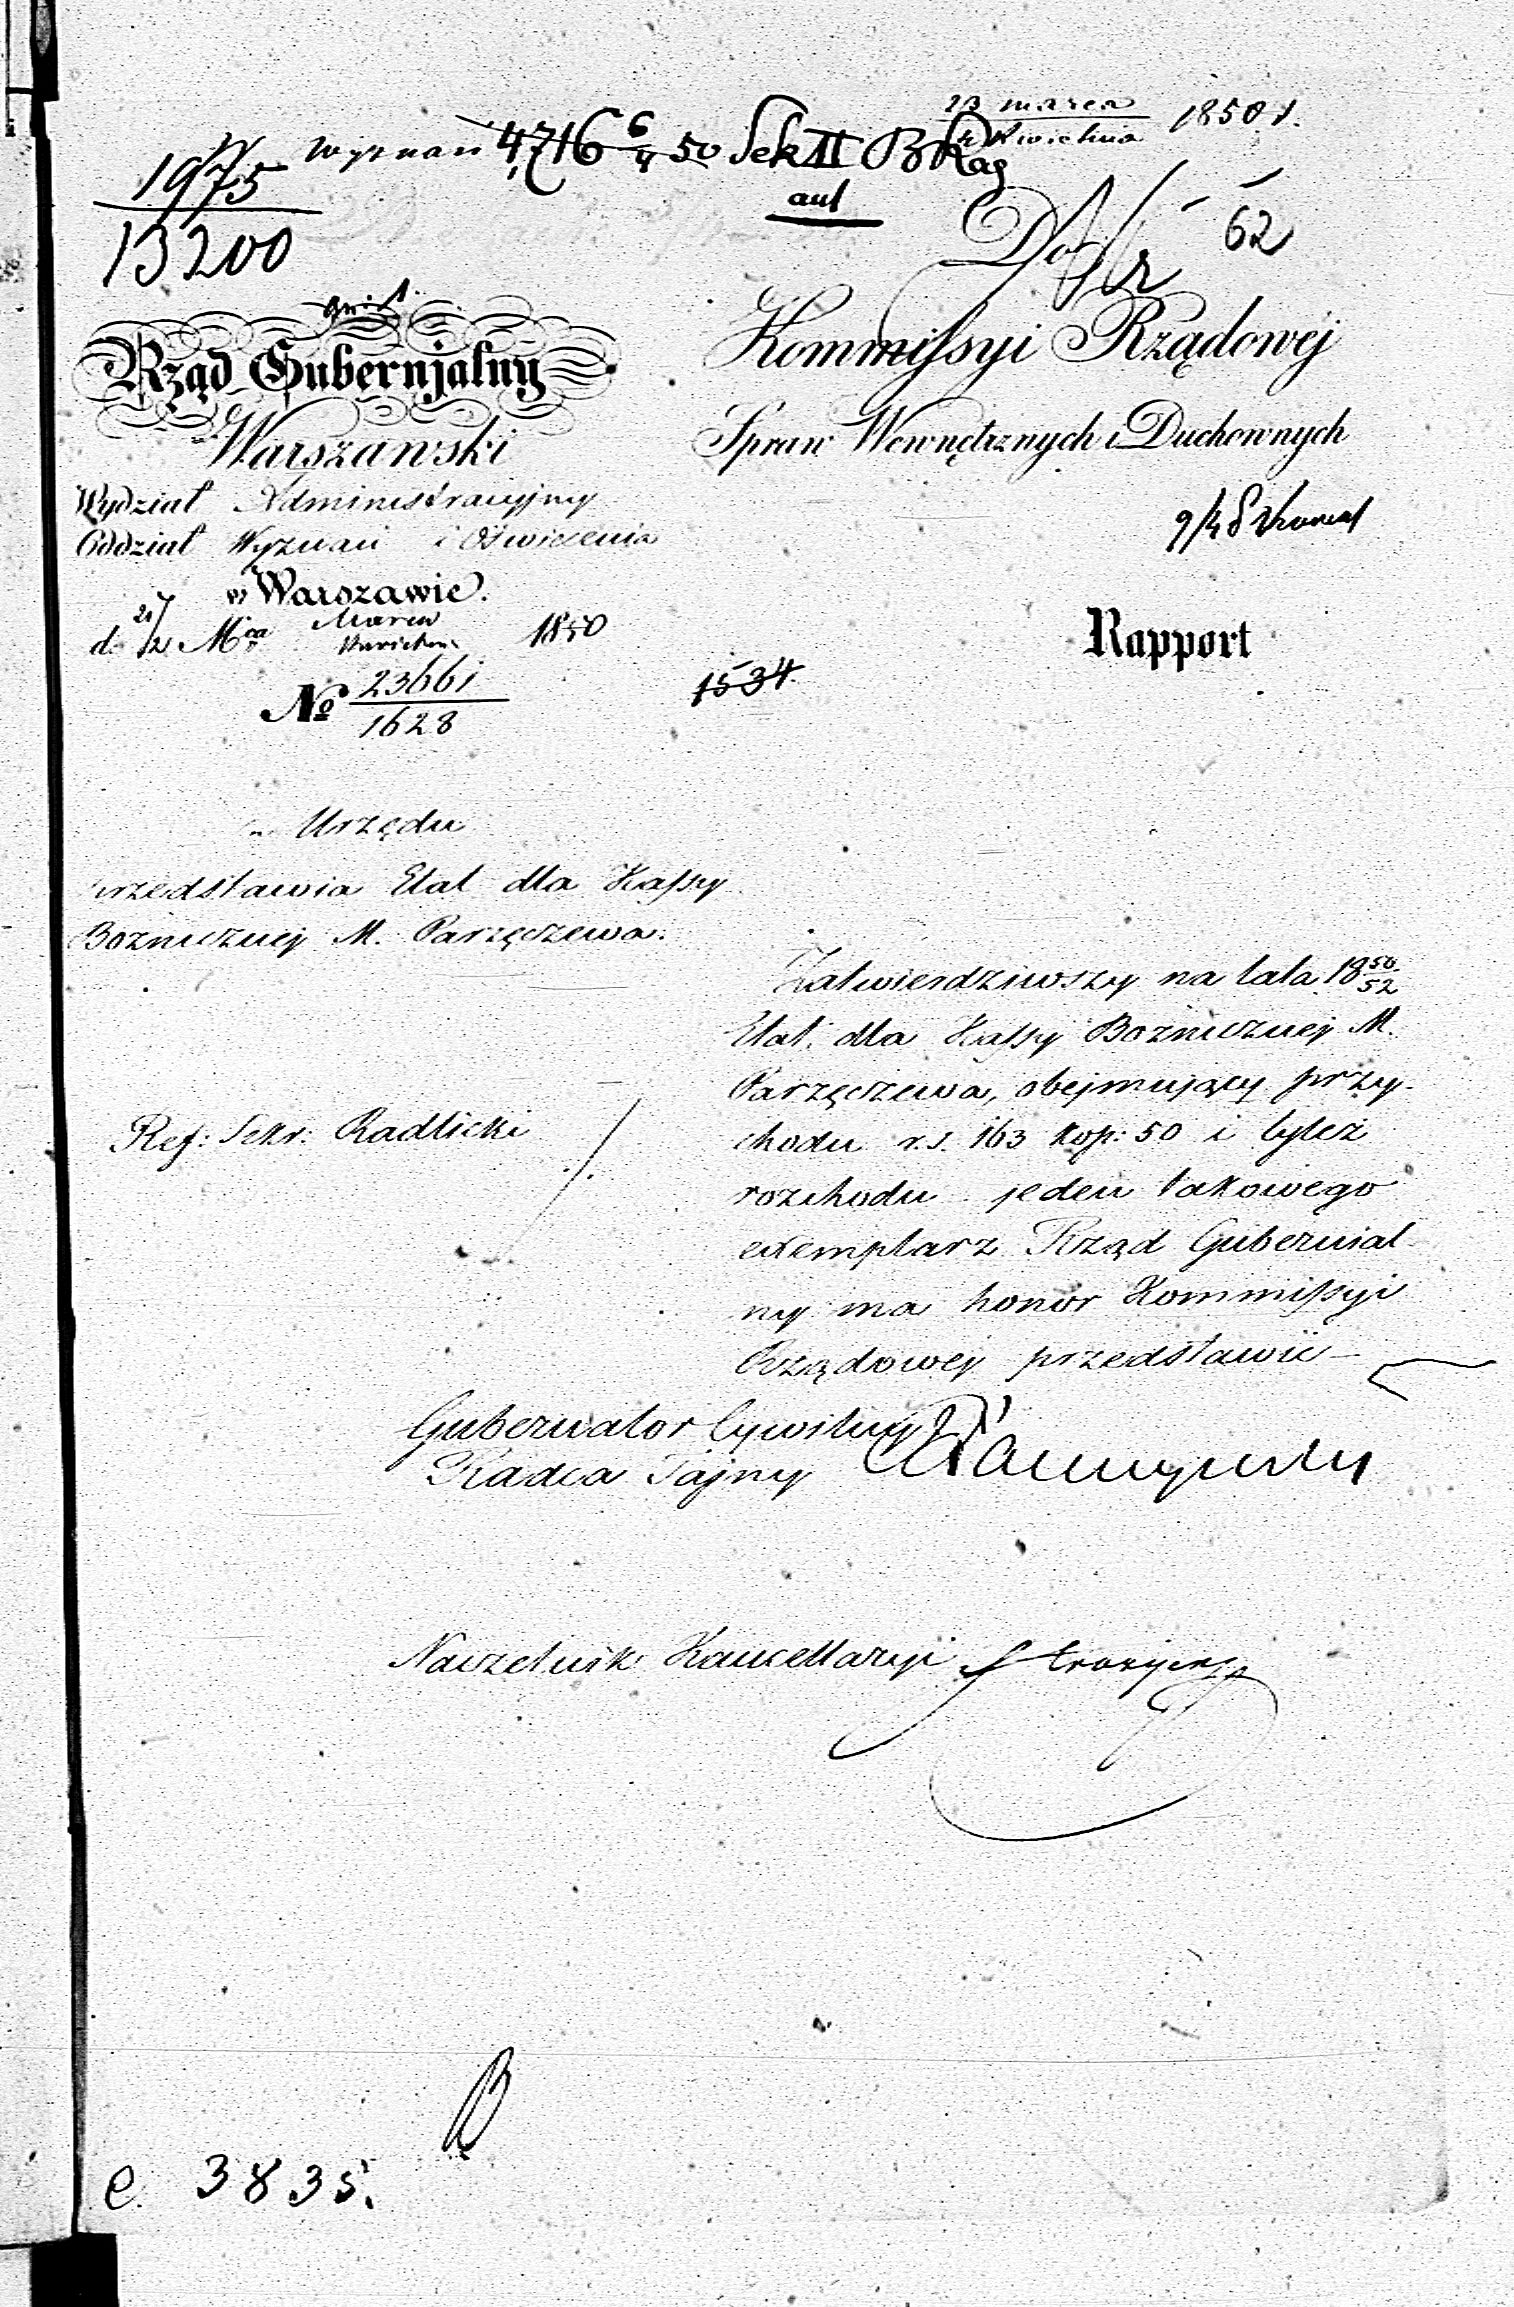 23 marca
4 Kwietnia 1850 r.
Wyznań 4716 6/4 50 Sek II
1975
13200
aut
62
Do
Kommissyi Rządowéj
Spraw Wewnętrznych i Duchownych
Rząd Gubernjalny
Warszawski
Wydział Administracyjny
Oddział Wyznań i Oświecenia
w Warszawie.
d. 21/2 Mca Marca Kwietnia 1850
№ 23661
1628
9/4
Rapport
1534.
z Urzędu
przedstawia Etat dla Kassy
Bożniczney M. Parzęczewa.
Zatwierdziwszy na lata 18 50/52
Etat dla Kassy Bożniczney M.
Parzęczewa, obejmujący przy-
chodu r.s. 163 kop: 50 i tyleż
rozchodu jeden takowego
exemplarz Rząd Gubernial
ny ma honor Kommissyi
Rządowey przedstawić —
Ref: Sekr: Radlicki
Gubernator Cywilny
Radca Tajny
Naczelnik Kancellaryi
e. 3835.